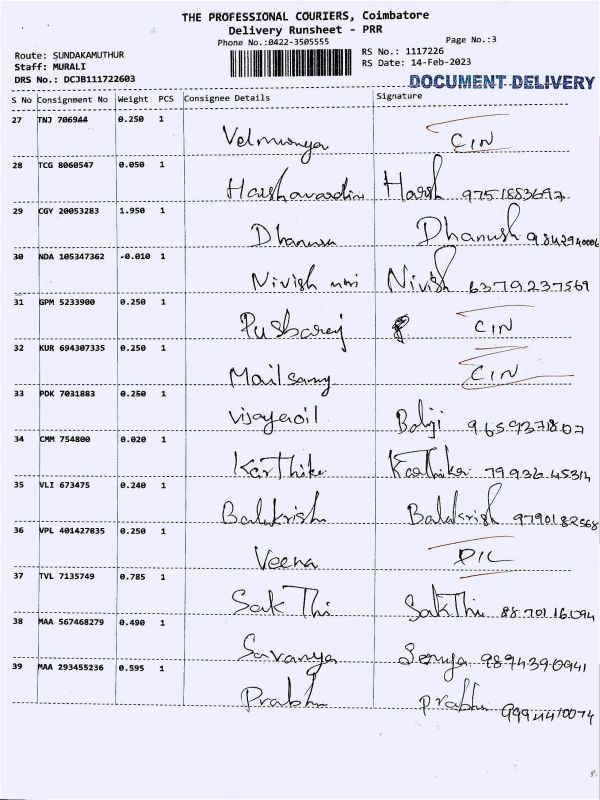 THE PROFESSIONAL COURIERS, Coimbatore
Delivery Runsheet - PRR
Phone No.:0422-3505555
Page No.:3
Route: SUNDAKAMUTHUR
RS No.: 1117226
Staff: MURALI
RS Date: 14-Feb-2023
DRS No.: DCJB111722603
DOCUMENT DELIVERY
S No Consignment No Weight PCS Consignee Details Signature
27 TNJ 706944 0.250 1 CIN
28 TCG 8060547 0.050 1 Harshavardin Harsh 9751883697
29 CGY 20053283 1.950 1 Dhanush 9842940006
30 NDA 105347362 -0.010 1 Nivish Nivish 6379237569
31 GPM 5233900 0.250 1 Pushparaj CIN
32 KUR 694307335 0.250 1 Mailsamy CIN
33 PDK 7031883 0.250 1 Balaji 9659371807
34 CMM 754800 0.020 1 Karthika Karthika 7993645314
35 VLI 673475 0.240 1 Balakrish Balakrish 9790182568
36 VPL 401427835 0.250 1 Veena D/L
37 TVL 7135749 0.785 1 Sak Thi SakThi 8870116094
38 MAA 567468279 0.490 1 Savanya 9894390941
39 MAA 293455236 0.595 1 Prabhu Prabhu 9994410074